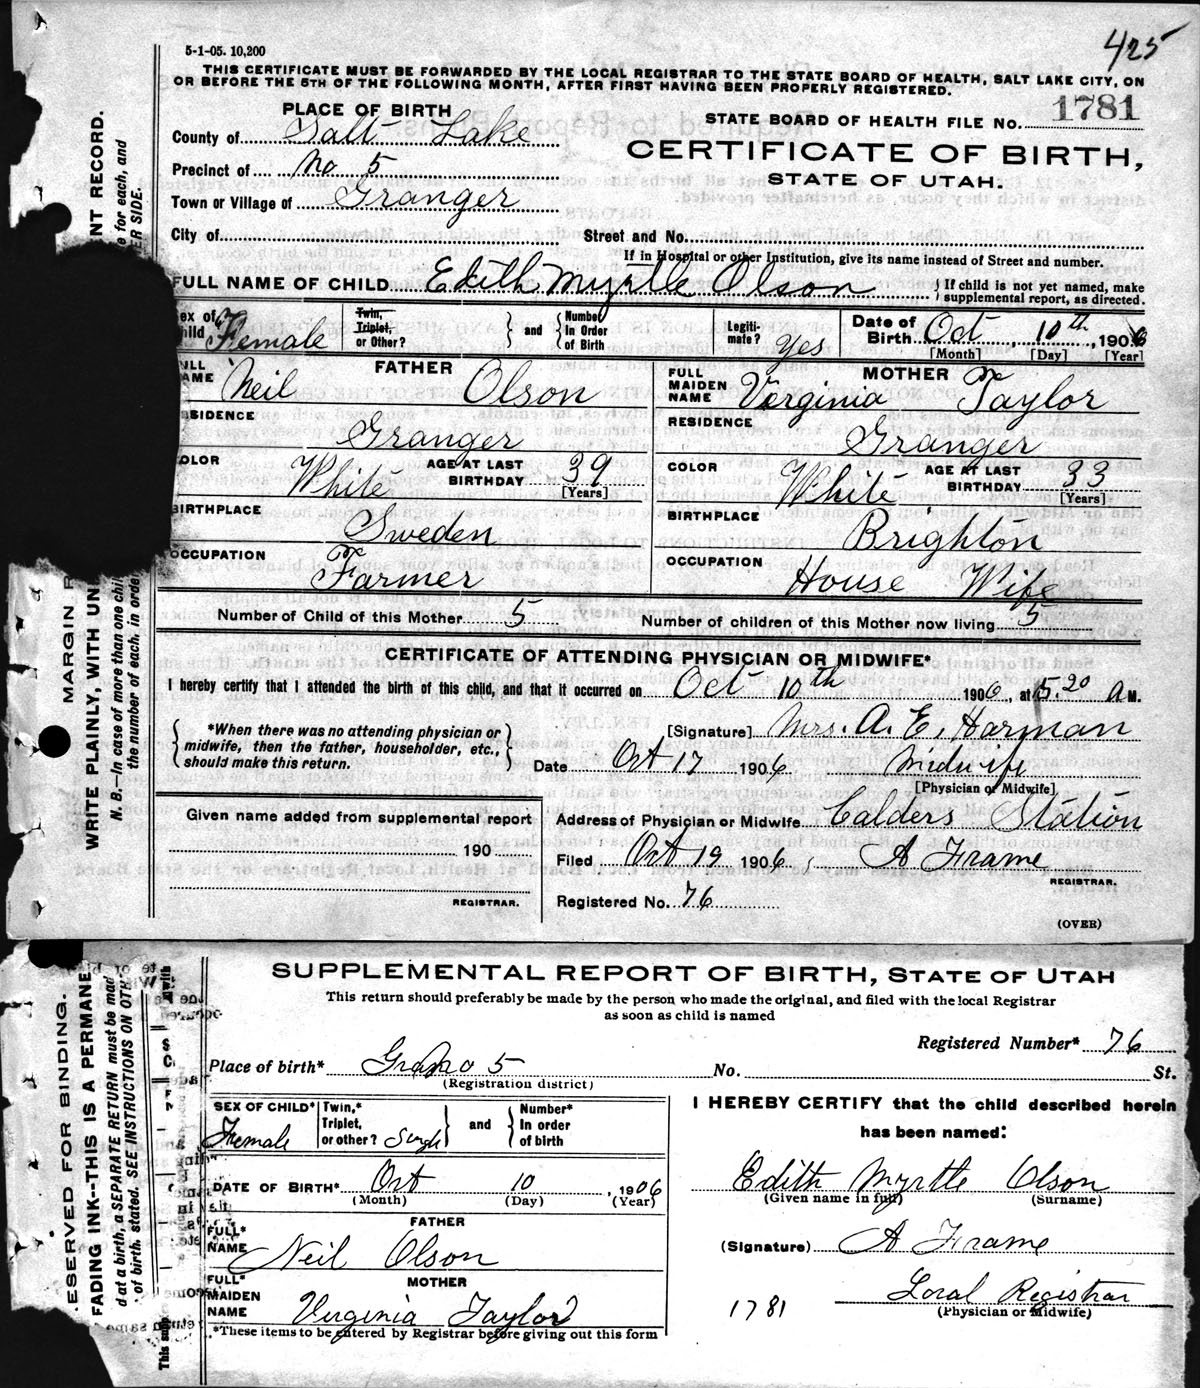 425
5-1-05. 10,200
THIS CERTIFICATE MUST BE FORWARDED BY THE LOCAL REGISTRAR TO THE STATE BOARD OF HEALTH, SALT LAKE CITY, ON
OR BEFORE THE 5TH OF THE FOLLOWING MONTH, AFTER FIRST HAVING BEEN PROPERLY REGISTERED.
PLACE OF BIRTH
STATE BOARD OF HEALTH FILE NO. 1781
County of Salt Lake
CERTIFICATE OF BIRTH,
Precinct of No 5
STATE OF UTAH.
Town or Village of Granger
City of Street and No.
If in Hospital or other Institution, give its name instead of Street and number.
FULL NAME OF CHILD Edith Myrtle Olson { If child is not yet named, make
supplemental report, as directed.
Sex of Child Female Twin, Triplet, or Other? } and { Number In Order of Birth Legiti-mate? Yes Date of Birth Oct 10th, 1906
[Month] [Day] [Year]
FATHER MOTHER
NAME Neil Olson FULL MAIDEN NAME Verginia Taylor
RESIDENCE Granger RESIDENCE Granger
COLOR White AGE AT LAST BIRTHDAY 39 [Years] COLOR White AGE AT LAST BIRTHDAY 33 [Years]
BIRTHPLACE Sweden BIRTHPLACE Brighton
OCCUPATION Farmer OCCUPATION House Wife
Number of Child of this Mother 5 Number of children of this Mother now living 5
CERTIFICATE OF ATTENDING PHYSICIAN OR MIDWIFE*
I hereby certify that I attended the birth of this child, and that it occurred on Oct 10th 1906, at 5.20 a M.
*When there was no attending physician or
midwife, then the father, householder, etc.,
should make this return.
[Signature] Mrs. A. E. Harman
Date Oct 17 1906 Midwife
[Physician or Midwife]
Given name added from supplemental report
Address of Physician or Midwife Calders Station
190
Filed Oct 19 1906, A Frame
REGISTRAR.
REGISTRAR.
Registered No. 76
(OVER)
MARGIN R
WRITE PLAINLY, WITH UN
N. B.—In case of more than one chil
the number of each, in order
NT RECORD.
e for each, and
ER SIDE.
SUPPLEMENTAL REPORT OF BIRTH, STATE OF UTAH
This return should preferably be made by the person who made the original, and filed with the local Registrar
as soon as child is named
Registered Number* 76
Place of birth* No 5 No. St.
(Registration district)
SEX OF CHILD* Female Twin,* Triplet, or other? Single } and { Number* In order of birth
I HEREBY CERTIFY that the child described herein
has been named:
DATE OF BIRTH* Oct 10, 1906
(Month) (Day) (Year)
Edith Myrtle Olson
(Given name in full) (Surname)
FATHER
FULL* NAME Neil Olson
(Signature) A Frame
MOTHER
FULL* MAIDEN NAME Verginia Taylor
Local Registrar
(Physician or Midwife)
1781
*These items to be entered by Registrar before giving out this form
ESERVED FOR BINDING.
FADING INK--THIS IS A PERMANE
d at a birth, a SEPARATE RETURN must be mad
of birth, stated. SEE INSTRUCTIONS ON OTH
This supp